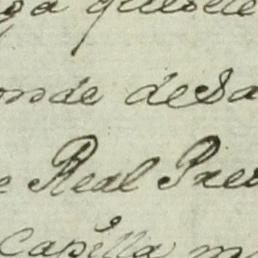 ga queste
onde desa
e Real Pre
Capella m